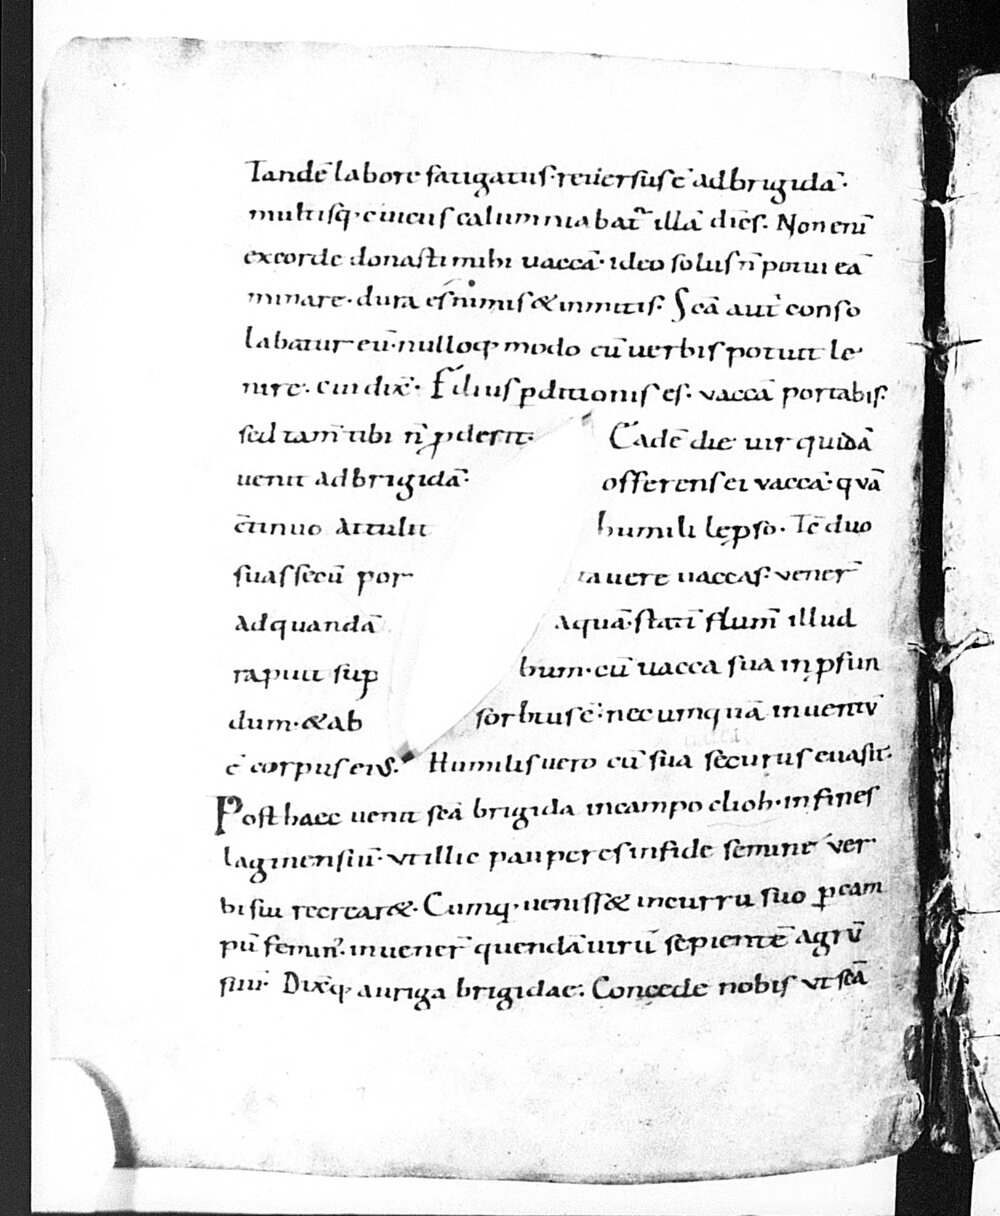 Tandē labore fatigatus· reuersus ē ad brigidā·
multisq· ciuicus calumniabat᷑ illā diēs. Non enī
ex corde donasti mihi uaccā· ideo solus n̄ potui eā
minare· dura es nimis & inmitis. Scā aut̄ conso
labatur eū· nulloq modo cū uerbis potuit le
nire· cui dix̄· Filius p̱ditionis es· vaccā portabis·
sed tam̄ tibi n̄ p̱derit· Eadē die uir quidā
uenit ad brigidā· offerens ei vaccā· quā
c̄tinuo attulit humili lep̱so· Tē duo
suas secū por tauere uaccas· vener̄
ad quandā aquā· statī flum̄ illud
rapuit sup̱ bum· cū uacca sua in p̱fun
dum· & ab sorbtus ē· nec umquā inuentū
ē corpus eius· Humilis uero cū sua securus euasit·
Post haec uenit scā brigida in campo clioh· in fines
laginensiū· vt illic pauperes in fide semine ver
bi sui recrear&· Cumq· ueniss& in curru suo p̱ cam
pū femin̄· inuener̄ quendā uirū sepientē agrū
suū· Dix̄q auriga brigidae· Concede nobis vt scā